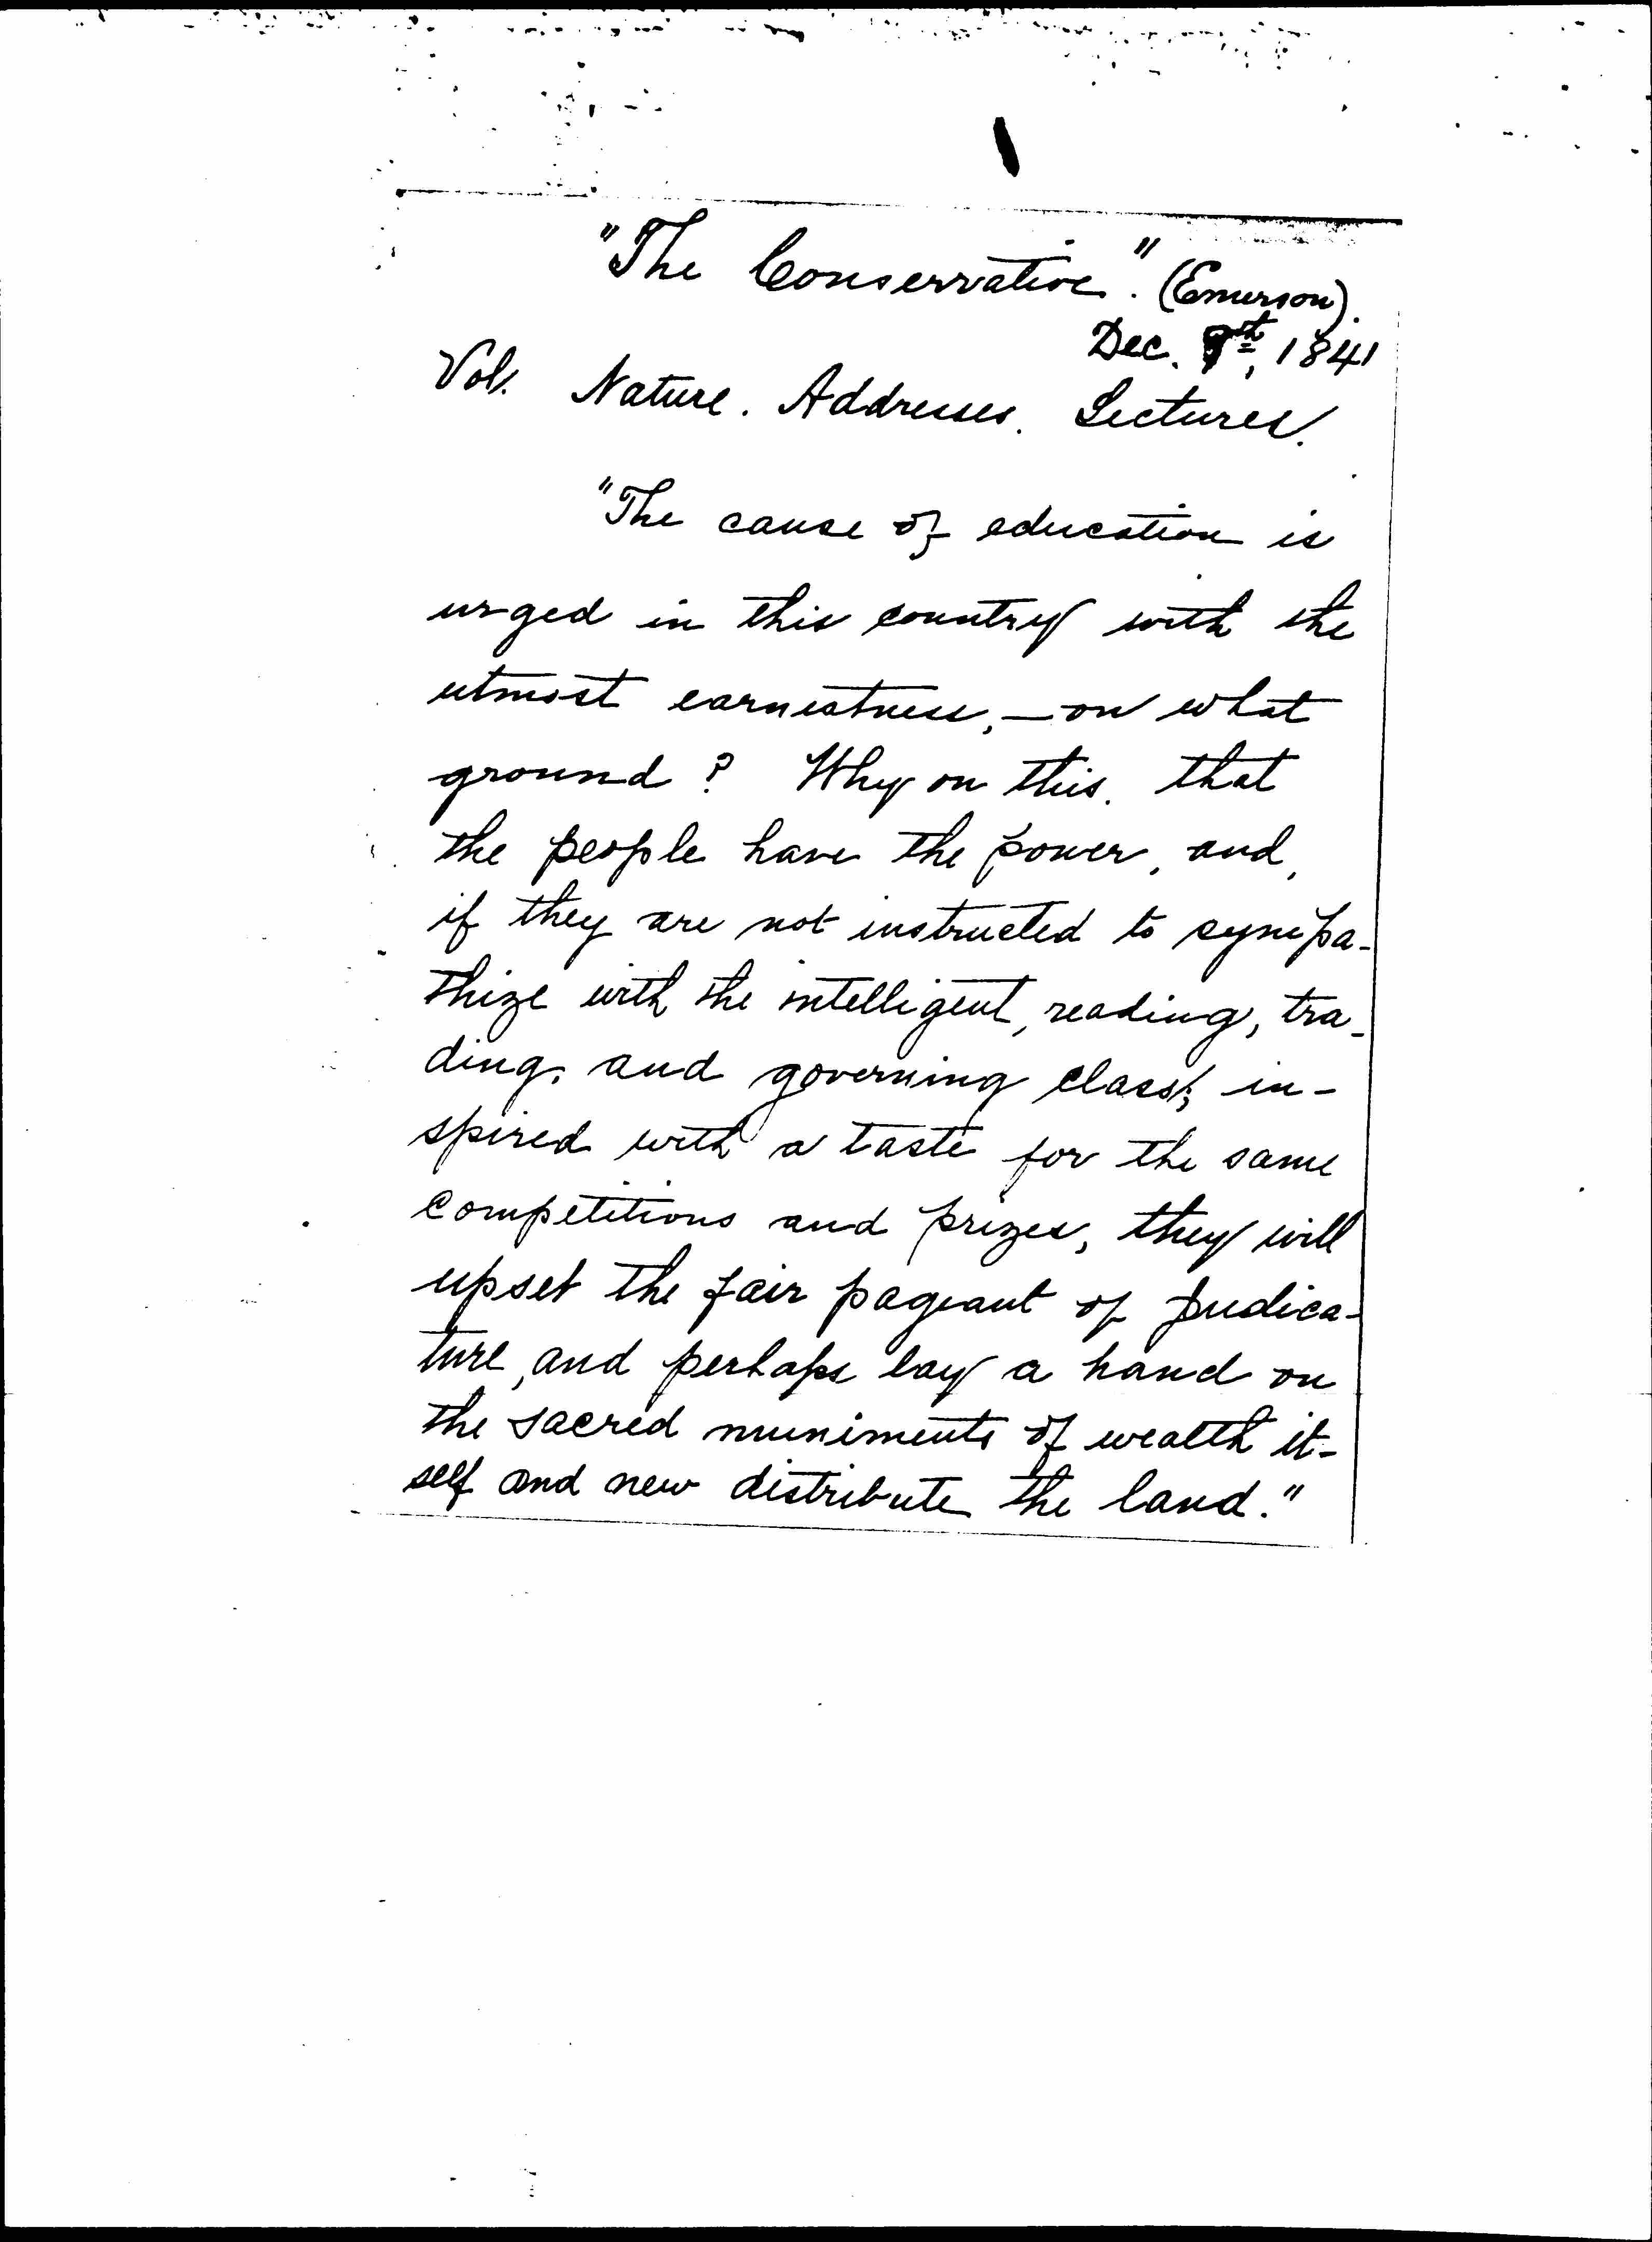 "The Conservative". (Emerson).
Dec. 9th, 1841
Vol. Nature. Addresses. Lectures.
"The cause of education is
urged in this country with the
utmost earnestness, — on what
ground? Why on this, that
the people have the power, and,
if they are not instructed to sympa-
thize with the intelligent, reading, tra-
ding, and governing class; in-
spired with a taste for the same
competitions and prizes, they will
upset the fair pageant of Judica-
ture, and perhaps lay a hand on
the sacred muniments of wealth it-
self and new distribute the land."